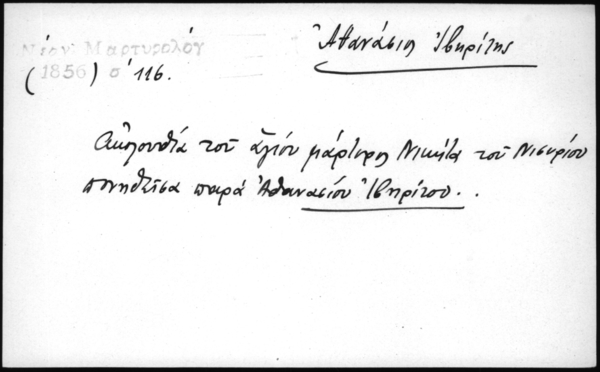 Νέον Μαρτυρολόγ
(1856) σ' 116.
Ἀθανάσιος Ἰβηρίτης
Ἀκολουθία τοῦ ἁγίου μάρτυρος Νικήτα τοῦ Νισυρίου
ποιηθεῖσα παρὰ Ἀθανασίου Ἰβηρίτου..